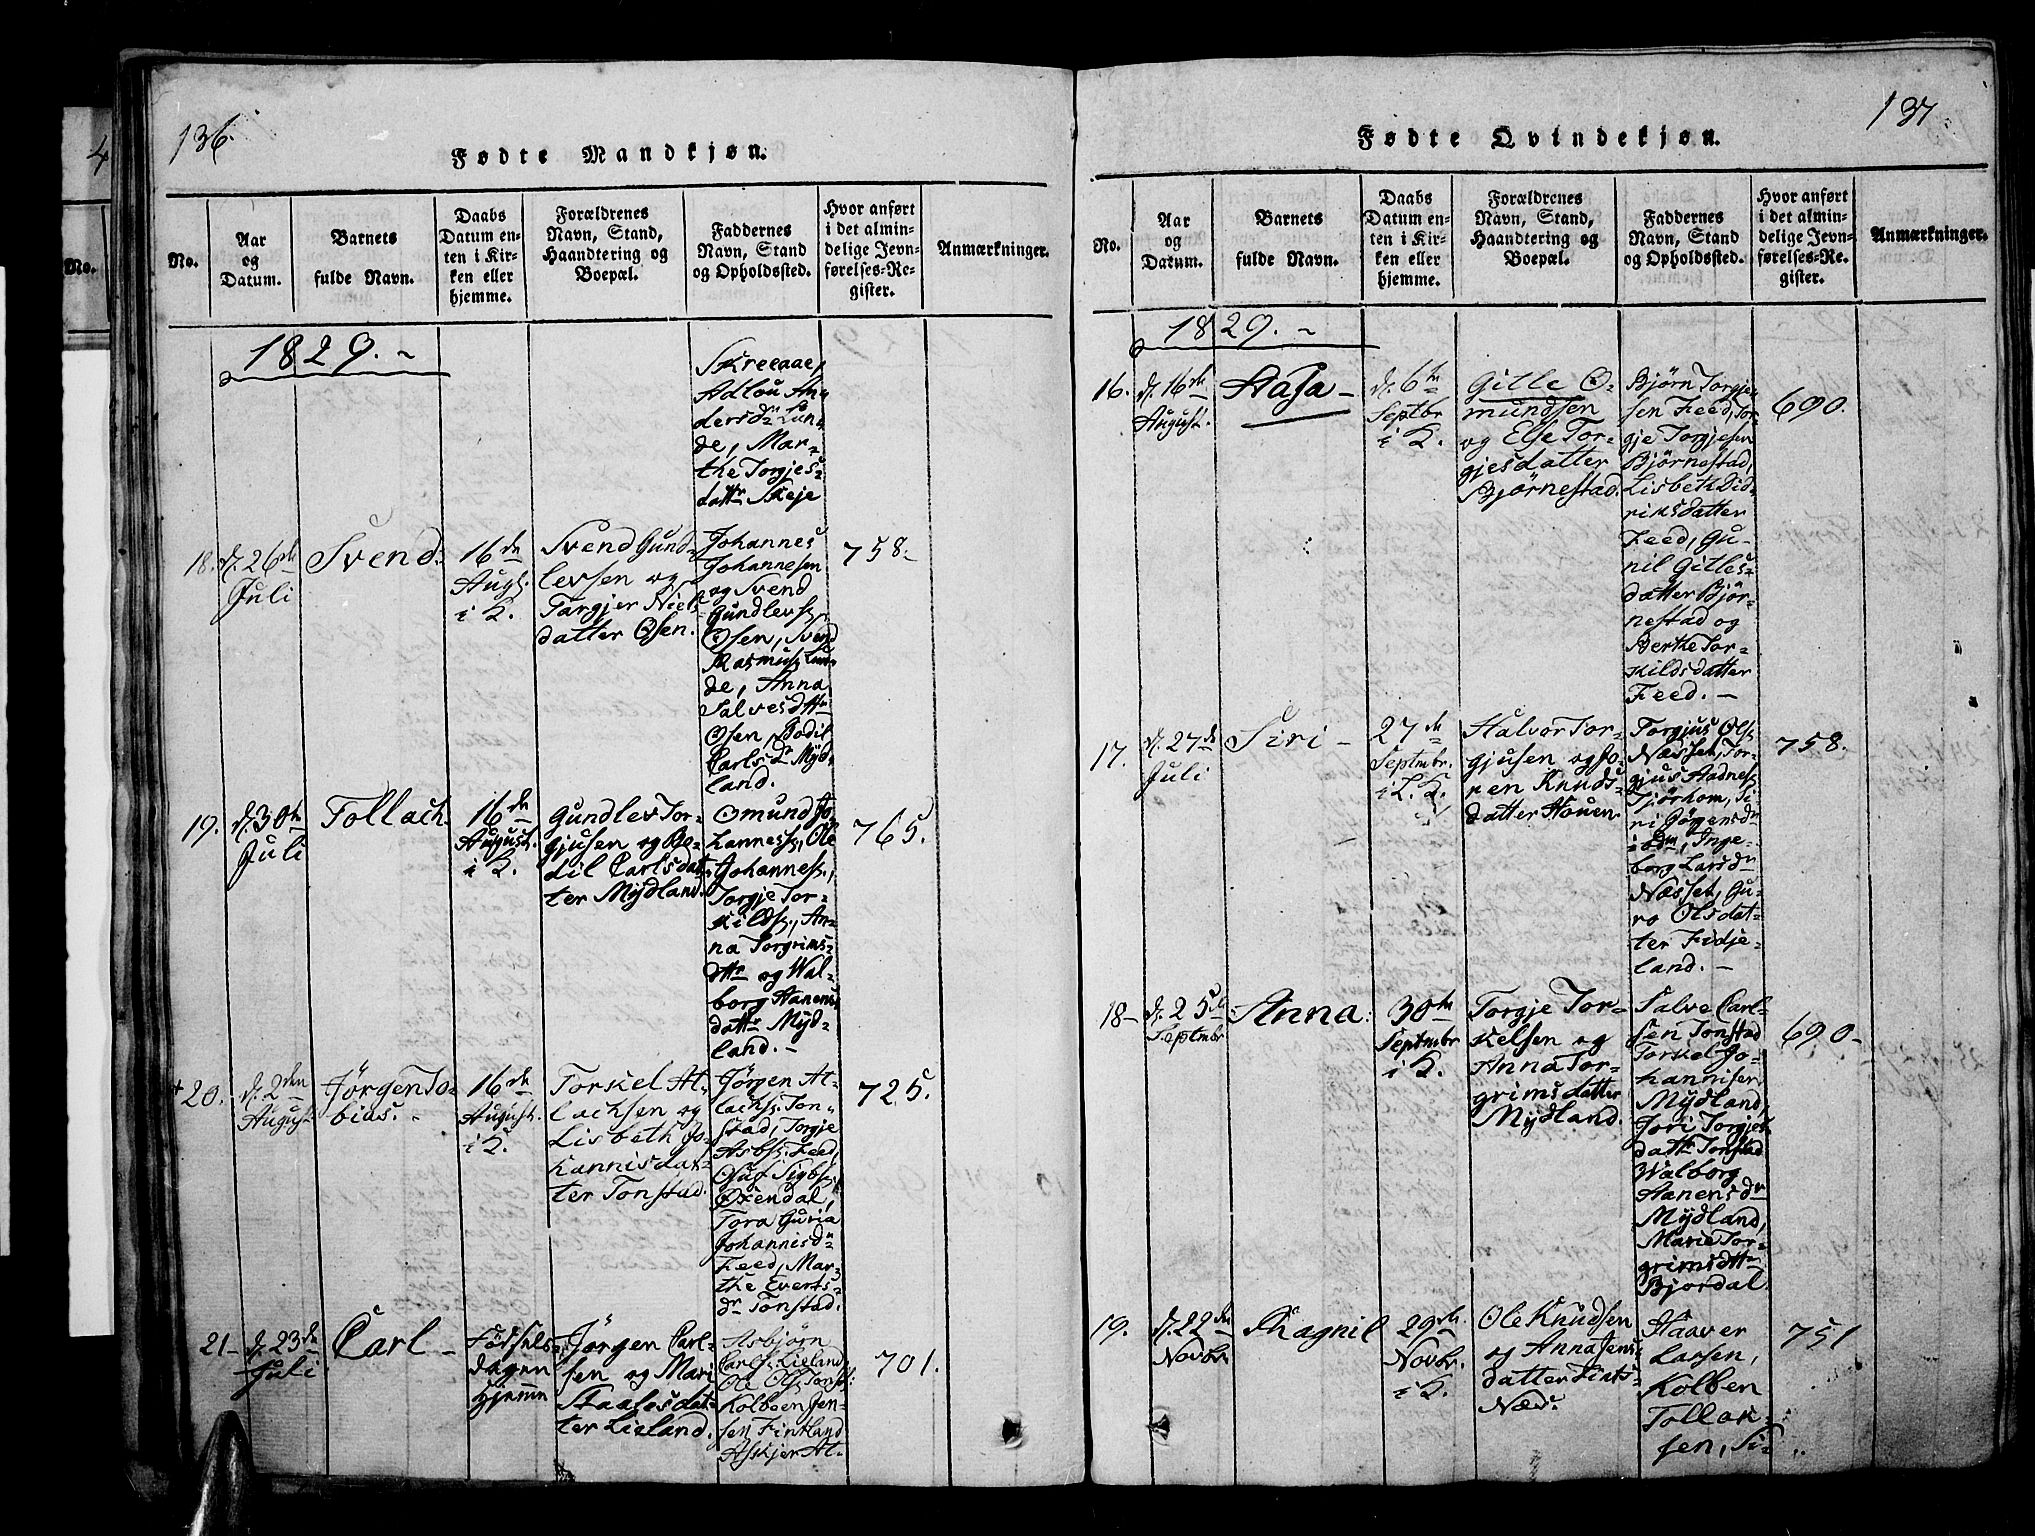 136.
Fødte Mandkjøn.
No.
Aar
og
Datum.
Barnets
fulde Navn.
Daabs
Datum en-
ten i Kir-
ken eller
hjemme.
Forældrenes
Navn, Stand,
Haandtering og
Boepæl.
Faddernes
Navn, Stand
og Opholdssted.
Hvor anført
i det almin-
delige Jevn-
førelses-Re-
gister.
Anmærkninger.
1829. ~
Skreeaae,
Adlou An-
dersdr Lun-
de, Mar-
the Torgjes-
dattr Skeje
18. d. 26de
Juli
Svend.
16de
Augs.
i K.
Svend Gund-
levsen og
Targjer Niels-
datter Osen.
Johannes
Johannesen
og Svend
Gundlevs.
Osen, Svend
Rasmuss. Lun-
de, Anna
Salvesdttr
Osen, Bodil
Carlsdr Mÿd-
land.
758.
19. d. 30te
Juli
Tollach.
16de
August.
i K.
Gundlev Tor-
gjusen og Bo-
dil Carlsdat-
ter Mÿdland.
Omund Jo-
hanness., Ole
Johanness.,
Torgje Tor-
kilds., An-
na Torgrims-
dttr og Wal-
borg Aanens-
dattr Mÿd-
land. -
765.
+20. d. 2den
August
Jørgen To-
bias. -
16de
August.
i K.
Torkel At-
lachsen og
Lisbeth Jo-
hannisdat-
ter Tonstad.
Jørgen At-
lachs. Ton-
stad, Torgje
Asbs. Feed,
Osuf Sigbs.
Oxendal,
Tora Guria
Johannisdr
Feed, Mar-
the Everts-
dr Tonstad.
725.
21- d. 23de
Juli
Carl -
Födsels
dagen
hjemme
Jørgen Carl-
sen og Mari
Staalesdat-
ter Lieland.
Asbjørn
Carls. Lieland,
Ole Ols. Tonst:
Kolbeen Jen-
sen Fintland
Askjer At-
701.
137
Fødte Qvindekjøn.
No.
Aar
og
Datum.
Barnets
fulde Navn.
Daabs
Datum en-
ten i Kir-
ken eller
hjemme.
Forældrenes
Navn, Stand,
Haandtering og
Boepæl.
Faddernes
Navn, Stand
og Opholdssted.
Hvor anført
i det almin-
delige Jevn-
førelses-Re-
gister.
Anmærkninger.
1829. ~
16. d. 16de
August.
Aasa -
d. 6te
Septbr
i K.
Gitle O-
mundsen
og Else Tor-
gjesdatter
Bjørnestad.
Bjørn Torgje-
sen Feed, Tor-
gje Torgjesen
Bjørnestad,
Lisbeth Did-
riksdatter
Feed, Gu-
nil Gitles-
datter Bjør-
nestad og
Berthe Tor-
kildsdatter
Feed. -
690.
17. d. 27de
Juli
Siri -
27de
Septmbr.
i L. K.
Halvor Tor-
gjusen og Jo-
ren Knuds-
datter Houen
Torgjus Ols.
Næsset, Tor-
gjus Aadness.
Tjørhom, Si-
ri Jørgensdr
ibdm, Inge-
borg Larsdr
Næsset, Gu-
ro Olsdat-
ter Fidje-
land. -
758.
18- d. 25de
Septmbr
Anna.
30te
Septmbr
i K.
Torgje Tor-
kelsen og
Anna Tor-
grimsdatter
Mÿdland.
Salve Carl-
sen Tonstad
Torkel Jo-
hannisen
Mÿdland,
Jori Torgjes-
dattr Tonstad
Walborg
Aanensdr
Mÿdland,
Marie Tor-
grimsdttr
Bjordal.
690-
19. d. 22de
Novbr.
Ragnil
29de
Novbr.
i K.
Ole Knudsen
og Anna Jens-
datter Fints-
Næs.
Haaver
Larsen,
Kolben
Tollak-
sen, Si-
751